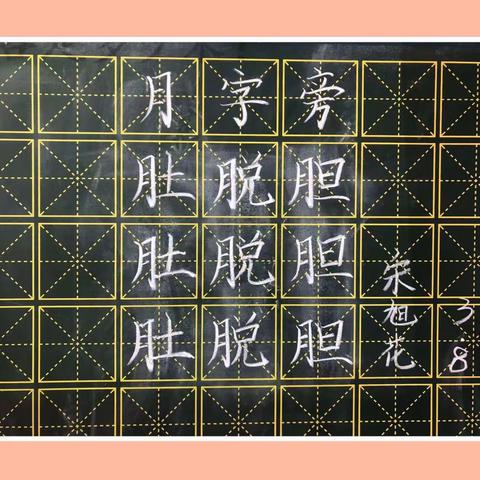 月字旁
肚脱胆
肚脱胆
肚脱胆
宋旭花
3.8